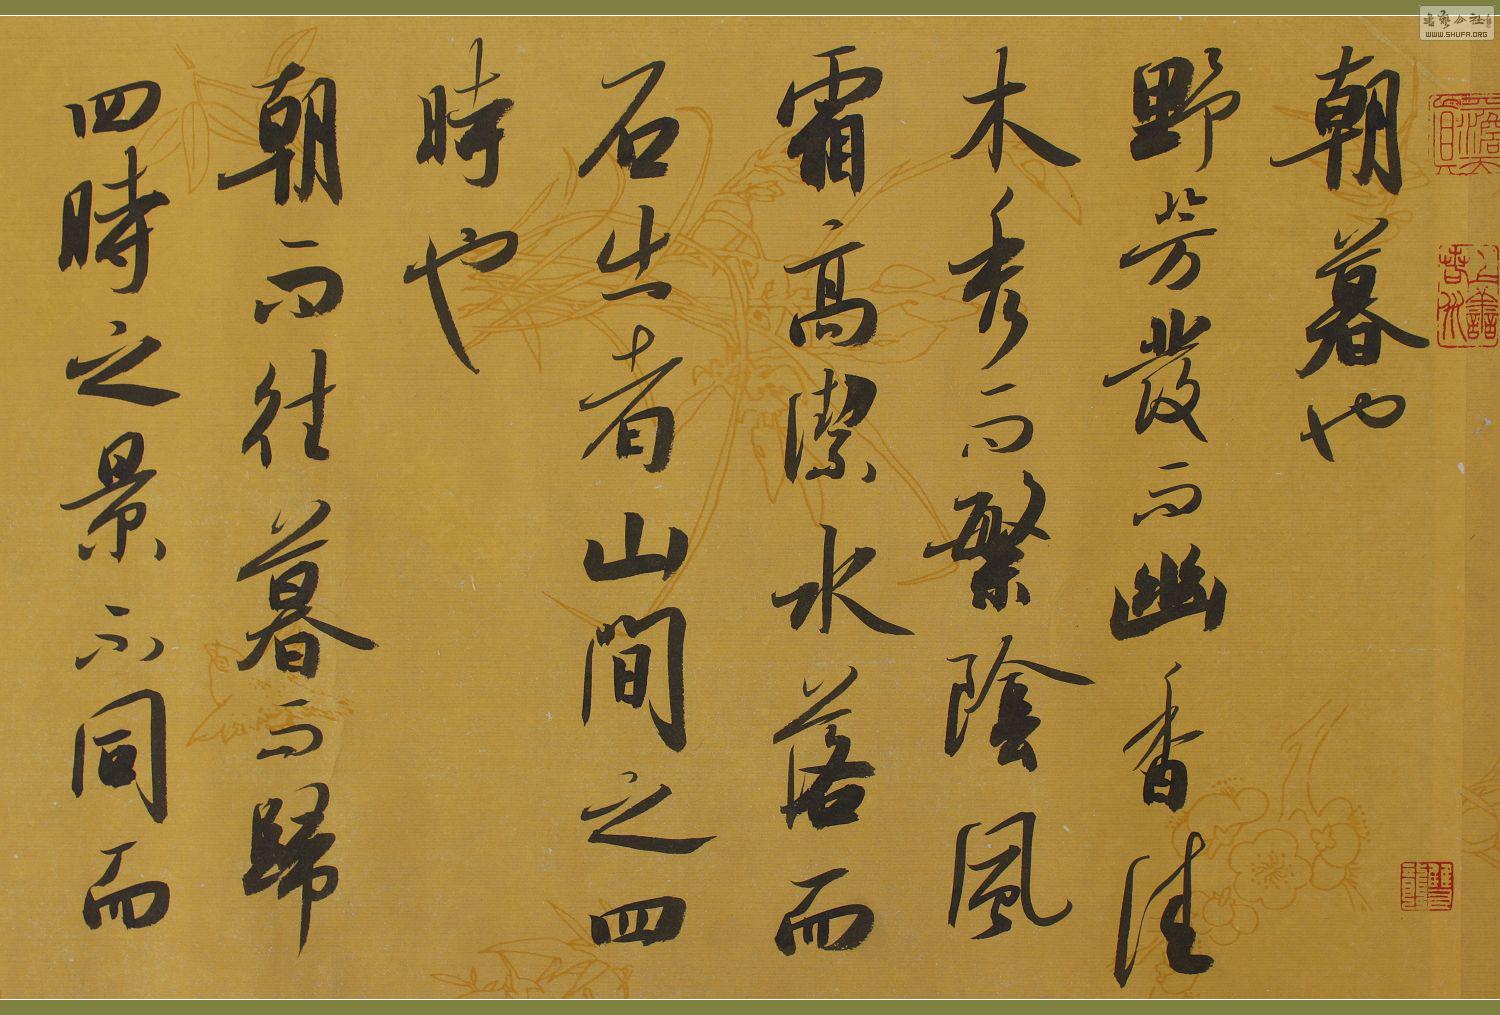 朝暮也
野芳發而幽香佳
木秀而繁陰風
霜高潔水落而
石出者山間之四
時也
朝而往暮而歸
四時之景不同而
上善
WWW.SHUFA.ORG